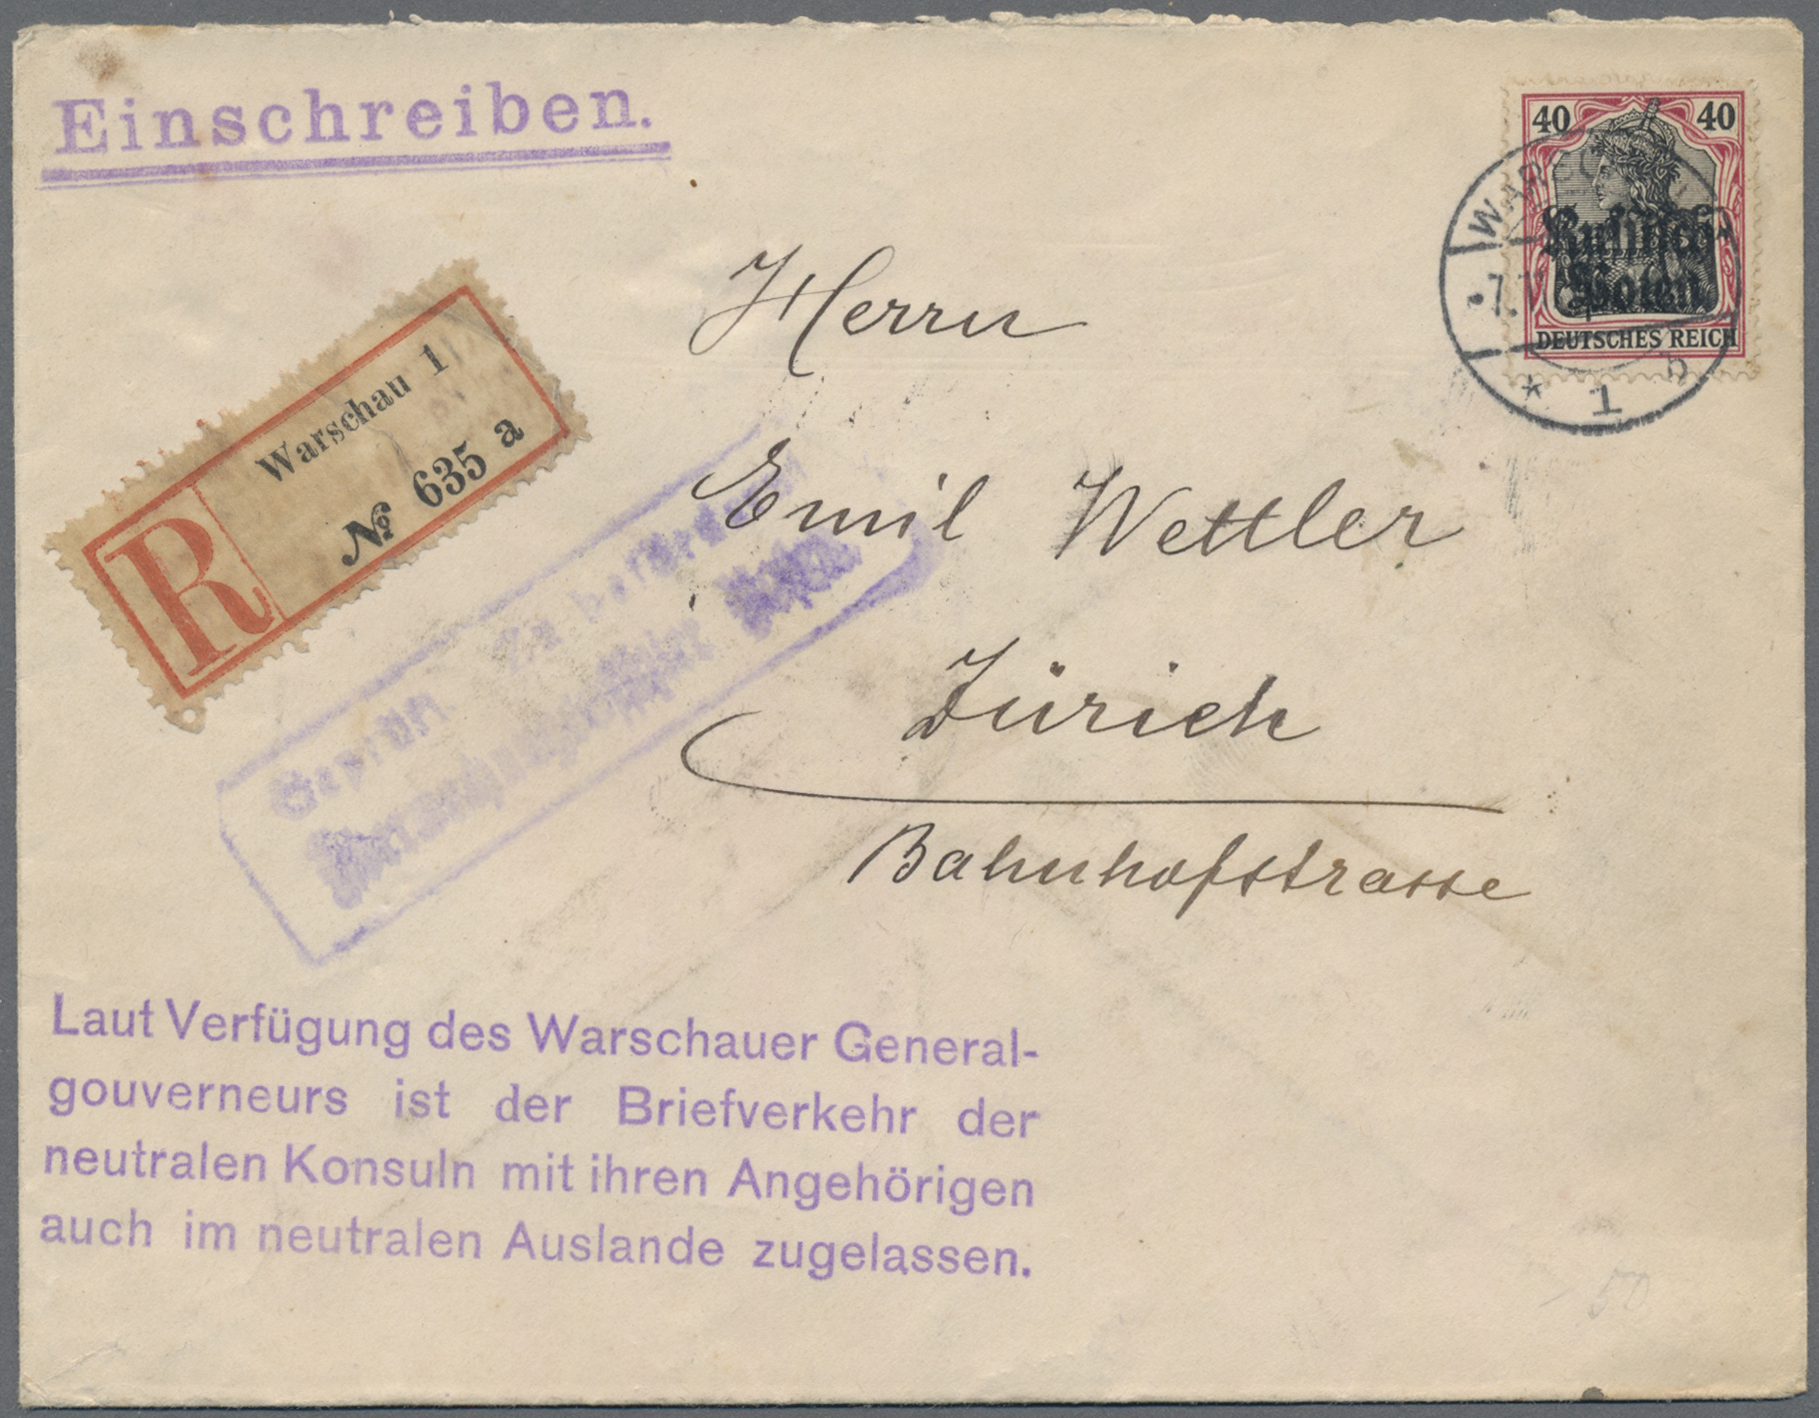 Einschreiben.
40 40
Russisch
Polen
DEUTSCHES REICH
* 1 b
Warschau 1
R № 635 a
Herrn
Emil Wettler
Zürich
Bahnhofstrasse
Geprüft
Laut Verfügung des Warschauer General-
gouverneurs ist der Briefverkehr der
neutralen Konsuln mit ihren Angehörigen
auch im neutralen Auslande zugelassen.
50